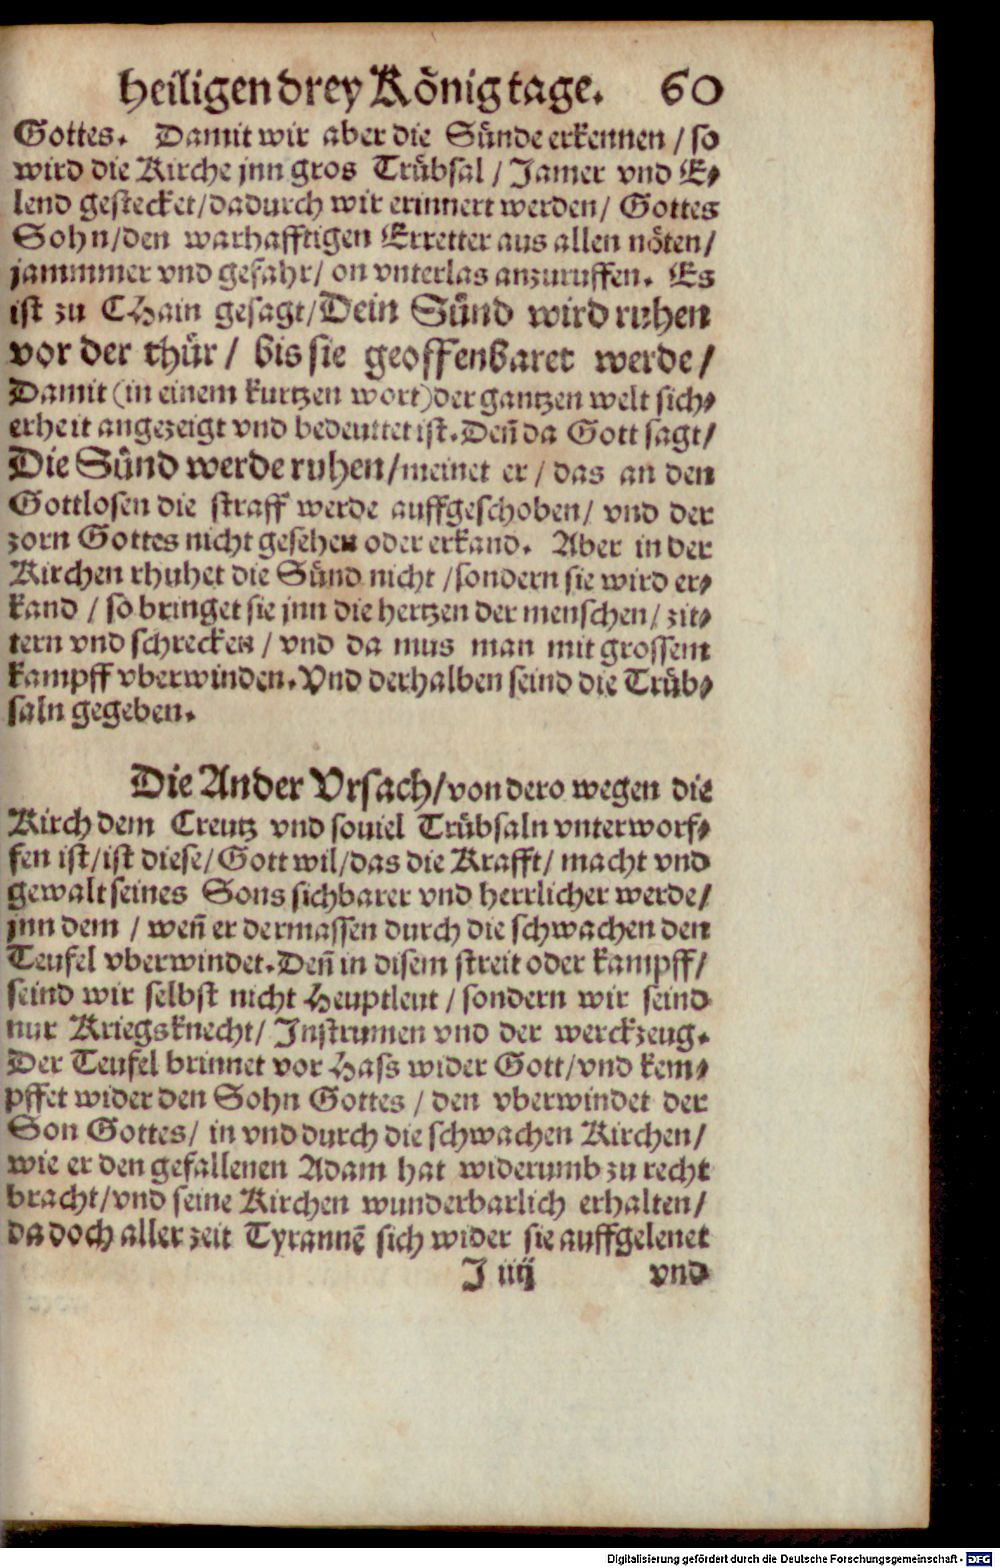 heiligen drey Königtage. 60
Gottes. Damit wir aber die Sünde erkennen / so
wird die Kirche jnn gros Trübsal / Jamer vnd E⸗
lend gestecket/dadurch wir erinnert werden/ Gottes
Sohn/den warhafftigen Erretter aus allen nöten/
jammmer vnd gefahr/ on vnterlas anzuruffen. Es
ist zu CHain gesagt/Dein Sünd wird ruhen
vor der thür/ bis sie geoffenbaret werde/
Damit (in einem kurtzen wort)der gantzen welt sich⸗
erheit angezeigt vnd bedeuttet ist. Deñ da Gott sagt/
Die Sünd werde ruhen/meinet er / das an den
Gottlosen die straff werde auffgeschoben/ vnd der
zorn Gottes nicht gesehen oder erkand. Aber in der
Kirchen rhuhet die Sünd nicht /sondern sie wird er⸗
kand / so bringet sie jnn die hertzen der menschen/ zit⸗
tern vnd schrecken / vnd da mus man mit grossem
kampff vberwinden. Vnd derhalben seind die Trüb⸗
saln gegeben.
Die Ander Vrsach/von dero wegen die
Kirch dem Creutz vnd souiel Trübsaln vnterworf⸗
fen ist/ist diese/Gott wil/das die Krafft/ macht vnd
gewalt seines Sons sichbarer vnd herrlicher werde/
jnn dem / weñ er dermassen durch die schwachen den
Teufel vberwindet. Deñ in disem streit oder kampff/
seind wir selbst nicht Heuptleut / sondern wir seind
nur Kriegsknecht/ Instrumen vnd der werckzeug.
Der Teufel brinnet vor Hass wider Gott/vnd kem⸗
pffet wider den Sohn Gottes / den vberwindet der
Son Gottes/ in vnd durch die schwachen Kirchen/
wie er den gefallenen Adam hat widerumb zu recht
bracht/vnd seine Kirchen wunderbarlich erhalten/
da doch aller zeit Tyranne͂ sich wider sie auffgelenet
J iiij vnd
Digitalisierung gefördert durch die Deutsche Forschungsgemeinschaft - DFG